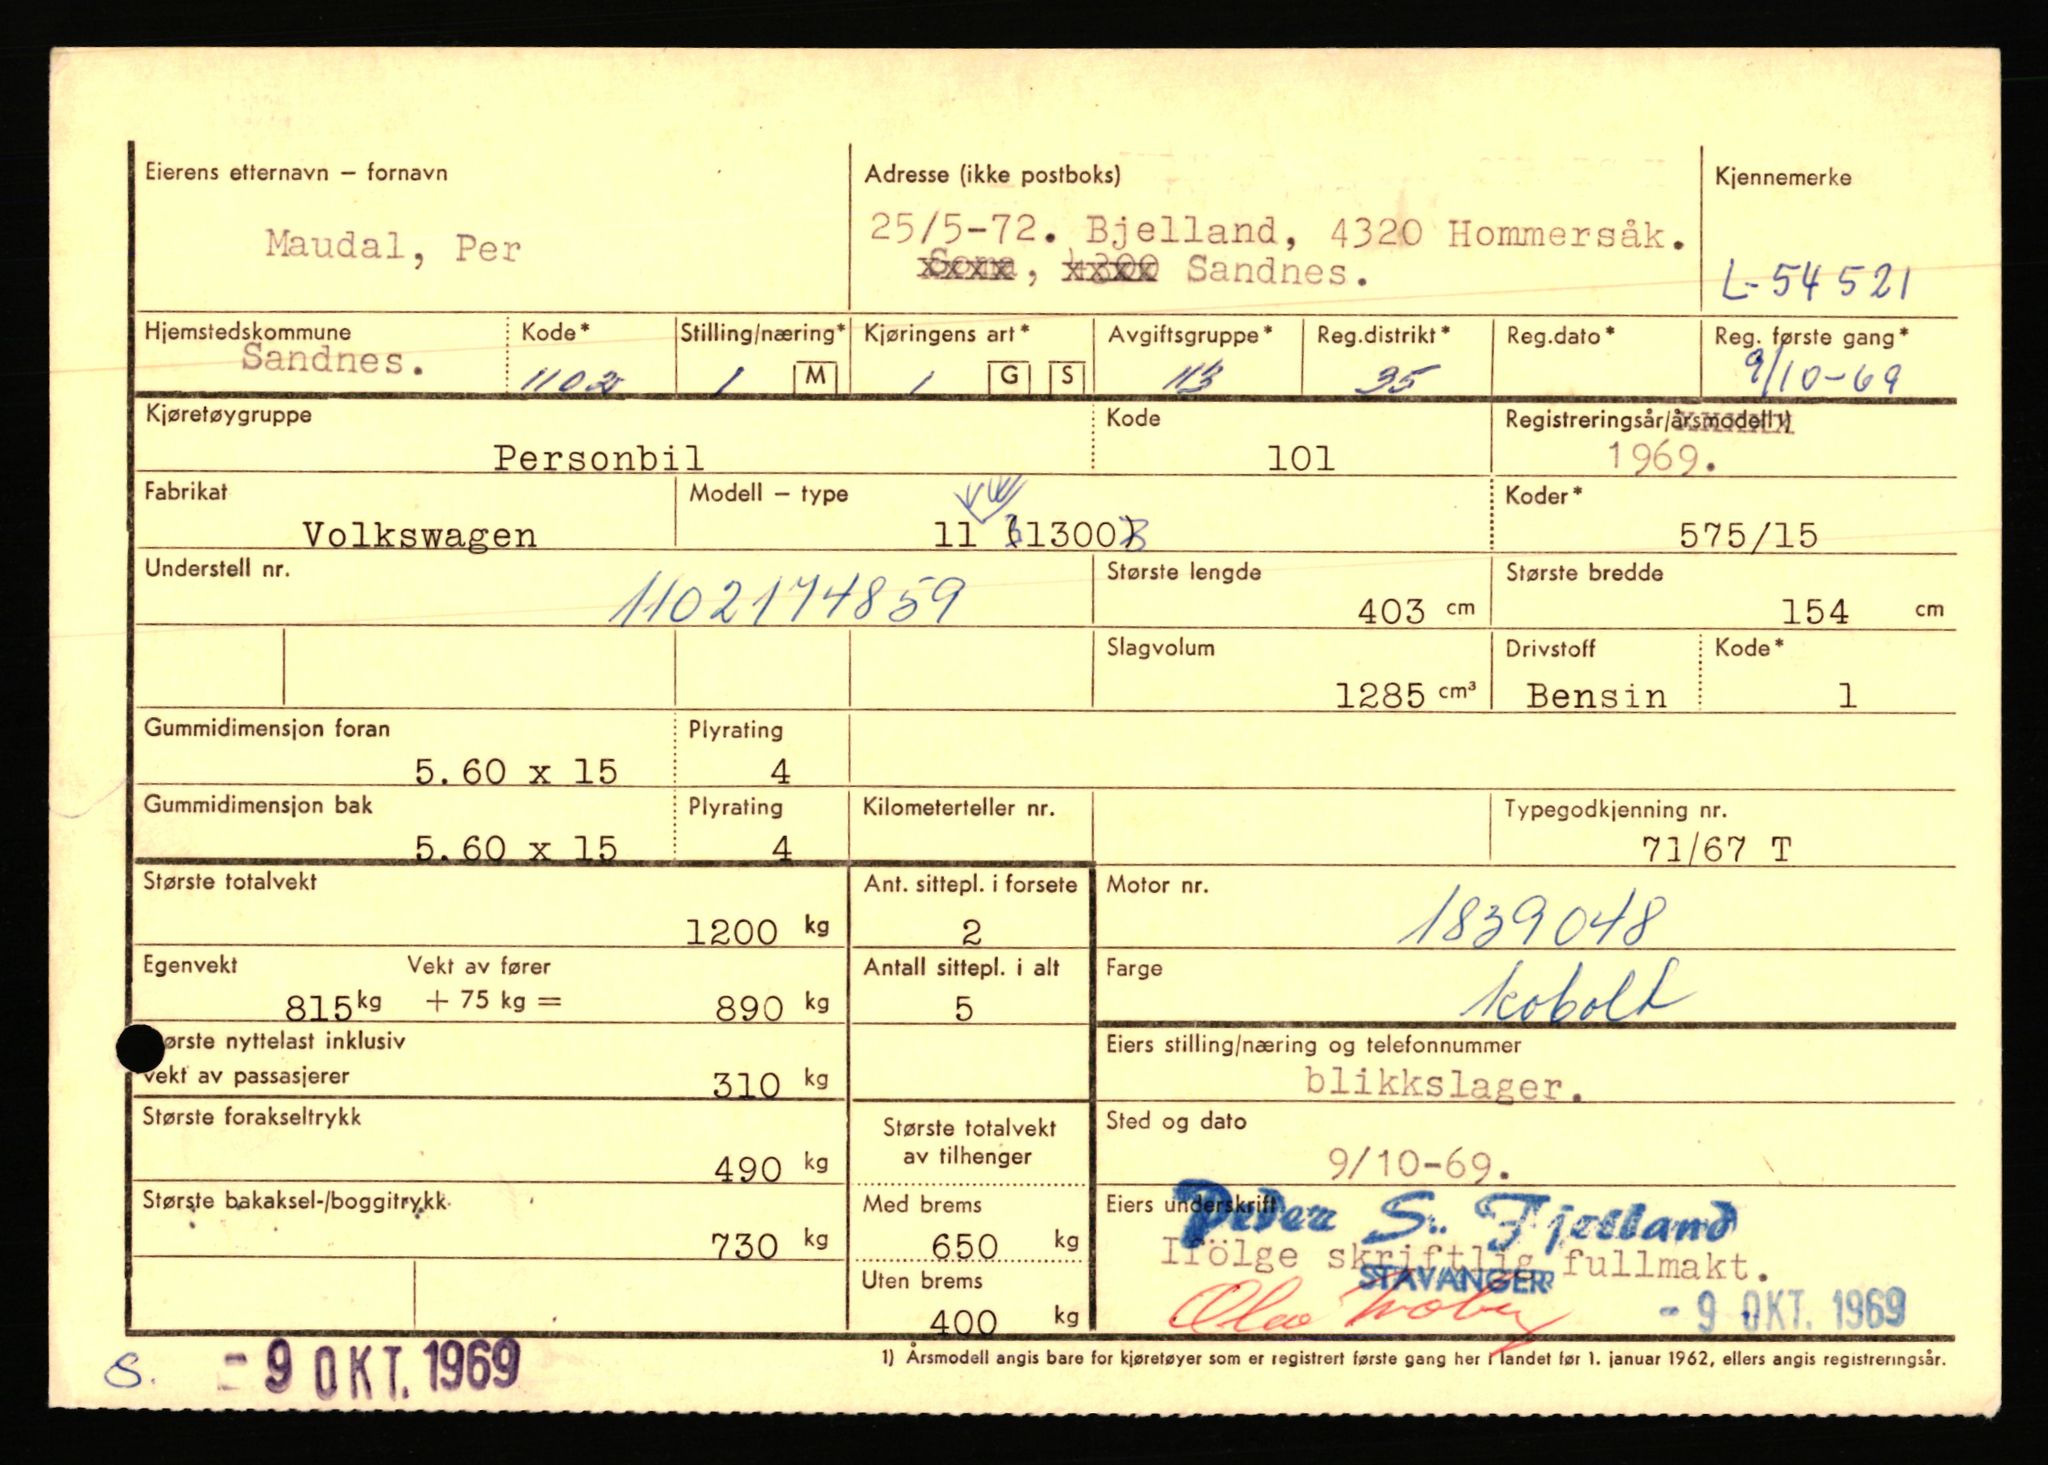 Eierens etternavn – fornavn
Maudal, Per
Adresse (ikke postboks)
25/5-72. Bjelland, 4320 Hommersåk.
Soma, 4300 Sandnes.
Kjennemerke
L-54521
Hjemstedskommune
Sandnes.
Kode*
1102
Stilling/næring*
1 M
Kjøringens art*
1 G S
Avgiftsgruppe*
113
Reg.distrikt*
35
Reg.dato*
Reg. første gang*
9/10-69
Kjøretøygruppe
Personbil
Kode
101
Registreringsår/årsmodell 1)
1969.
Fabrikat
Volkswagen
Modell – type
11 (1300)
Koder*
575/15
Understell nr.
1102174859
Største lengde
403 cm
Største bredde
154 cm
Slagvolum
1285 cm³
Drivstoff
Bensin
Kode*
1
Gummidimensjon foran
5.60 x 15
Plyrating
4
Gummidimensjon bak
5.60 x 15
Plyrating
4
Kilometerteller nr.
Typegodkjenning nr.
71/67 T
Største totalvekt
1200 kg
Ant. sittepl. i forsete
2
Motor nr.
1839048
Egenvekt
815 kg
Vekt av fører
+ 75 kg =
890 kg
Antall sittepl. i alt
5
Farge
kobolt
ørste nyttelast inklusiv
vekt av passasjerer
310 kg
Eiers stilling/næring og telefonnummer
blikkslager.
Største forakseltrykk
490 kg
Største totalvekt
av tilhenger
Sted og dato
9/10-69.
Største bakaksel-/boggitrykk
730 kg
Med brems
650 kg
Uten brems
400 kg
Eiers underskrift
Peder S. Fjelland
Ifölge skriftlig fullmakt.
STAVANGER
- 9 OKT. 1969
S.
- 9 OKT. 1969
1) Årsmodell angis bare for kjøretøyer som er registrert første gang her i landet før 1. januar 1962, ellers angis registreringsår.